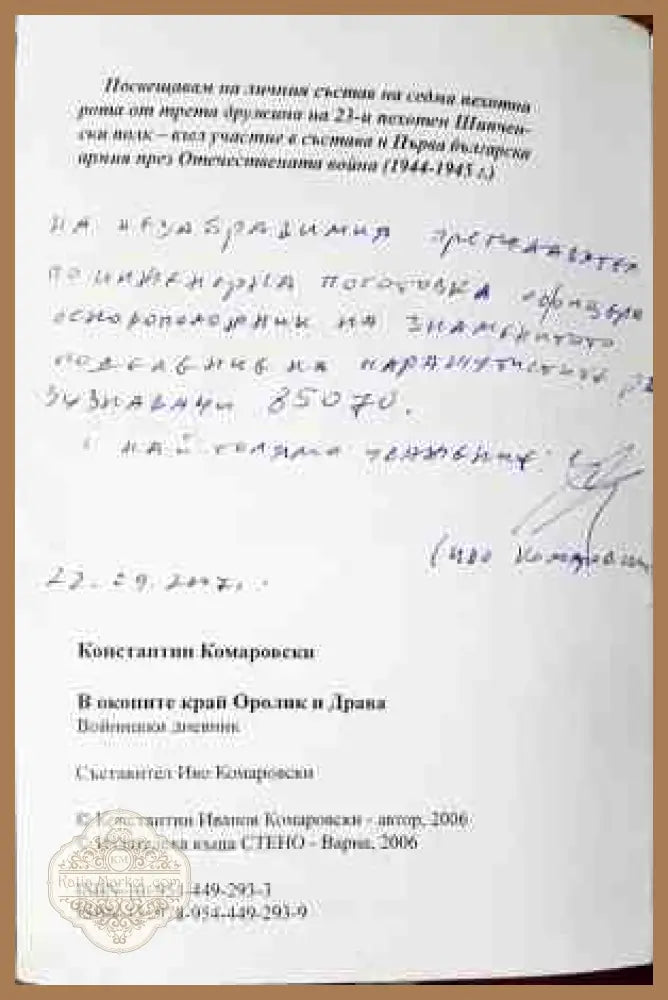 Посвещавам на личния състав на седма пехотна
рота от трета дружина на 23-и пехотен Шипчен-
ски полк – взел участие в състава и Първа българска
армия през Отечествената война (1944-1945 г.)
на незабравимия преподавател
по инженерна подготовка офицера
основоположник на знаменитото
поделение на парашутистите
85070.
с най голямо уважение:
(Иво Комаровски
27.09.2007г.
Константин Комаровски
В окопите край Оролик и Драва
Войнишки дневник
Съставител Иво Комаровски
© Константин Иванов Комаровски - автор, 2006
© Издателска къща СТЕНО - Варна, 2006
ISBN-10: 954-449-293-3
ISBN-13: 978-954-449-293-9
KM
Katia Market .com